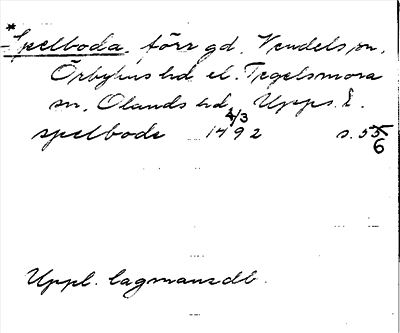 *Spelboda, förr gd, Vendels sn,
Örbyhus hd el. Tegelsmora
sn, Olands hd, Upps. l.
spelbode 14 4/3 92 s. 55
6
Uppl. lagmansdb.